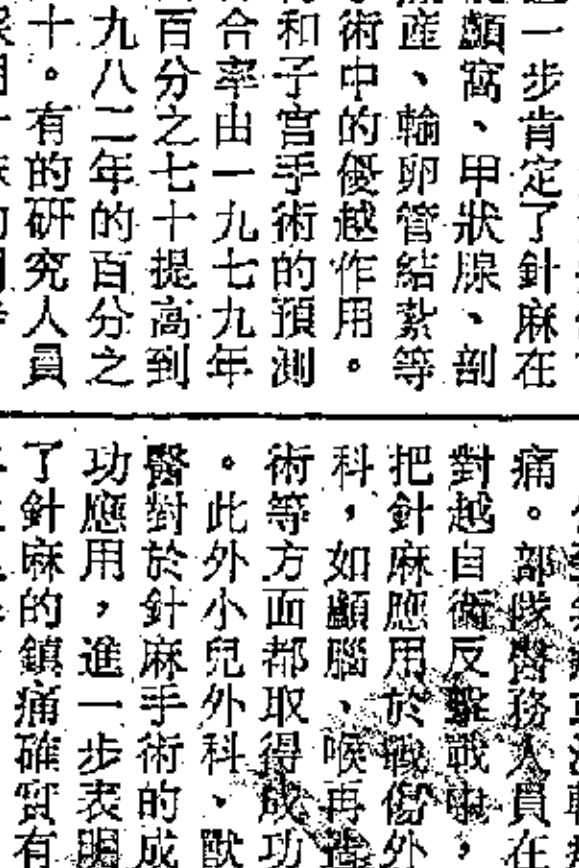 一步肯定了針麻在
顱窩、甲狀腺、剖
產、輸卵管結紮等
術中的優越作用。
和子宮手術的預測
合率由一九七九年
百分之七十提高到
九八二年的百分之
十。有的研究人員
痛。部隊醫務人員在
對越自衛反擊戰中，
把針麻應用於戰傷外
科，如顱腦、喉再造
術等方面都取得成功
。此外小兒外科、獸
醫對於針麻手術的成
功應用，進一步表明
了針麻的鎮痛確實有